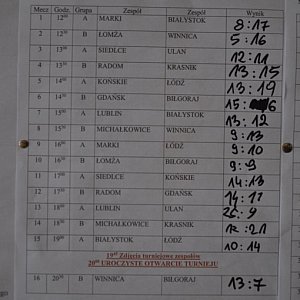 Mecz Godz. Grupa Zespół Zespół Wynik
1 12⁰⁰ A MARKI BIAŁYSTOK 8:17
2 12³⁰ B ŁOMŻA WINNICA 5:16
3 13⁰⁰ A SIEDLCE ULAN 12:11
4 13³⁰ B RADOM KRASNIK 13:15
5 14⁰⁰ A KOŃSKIE ŁÓDŹ 13:19
6 14³⁰ B GDAŃSK BIŁGORAJ 15:6
7 15⁰⁰ A LUBLIN BIAŁYSTOK 13:12
8 15³⁰ B MICHAŁKOWICE WINNICA 9:13
9 16⁰⁰ A MARKI ŁÓDŹ 9:10
10 16³⁰ B ŁOMŻA BIŁGORAJ 9:9
11 17⁰⁰ A SIEDLCE KOŃSKIE 14:13
12 17³⁰ B RADOM GDAŃSK
13 18⁰⁰ A LUBLIN ULAN
14 18³⁰ B MICHAŁKOWICE KRASNIK
15 19⁰⁰ A BIAŁYSTOK ŁÓDŹ 10:14
19⁴⁵ Zdjęcia turniejowe zespołów
20⁰⁰ UROCZYSTE OTWARCIE TURNIEJU
16 20³⁰ B WINNICA BIŁGORAJ 13:7